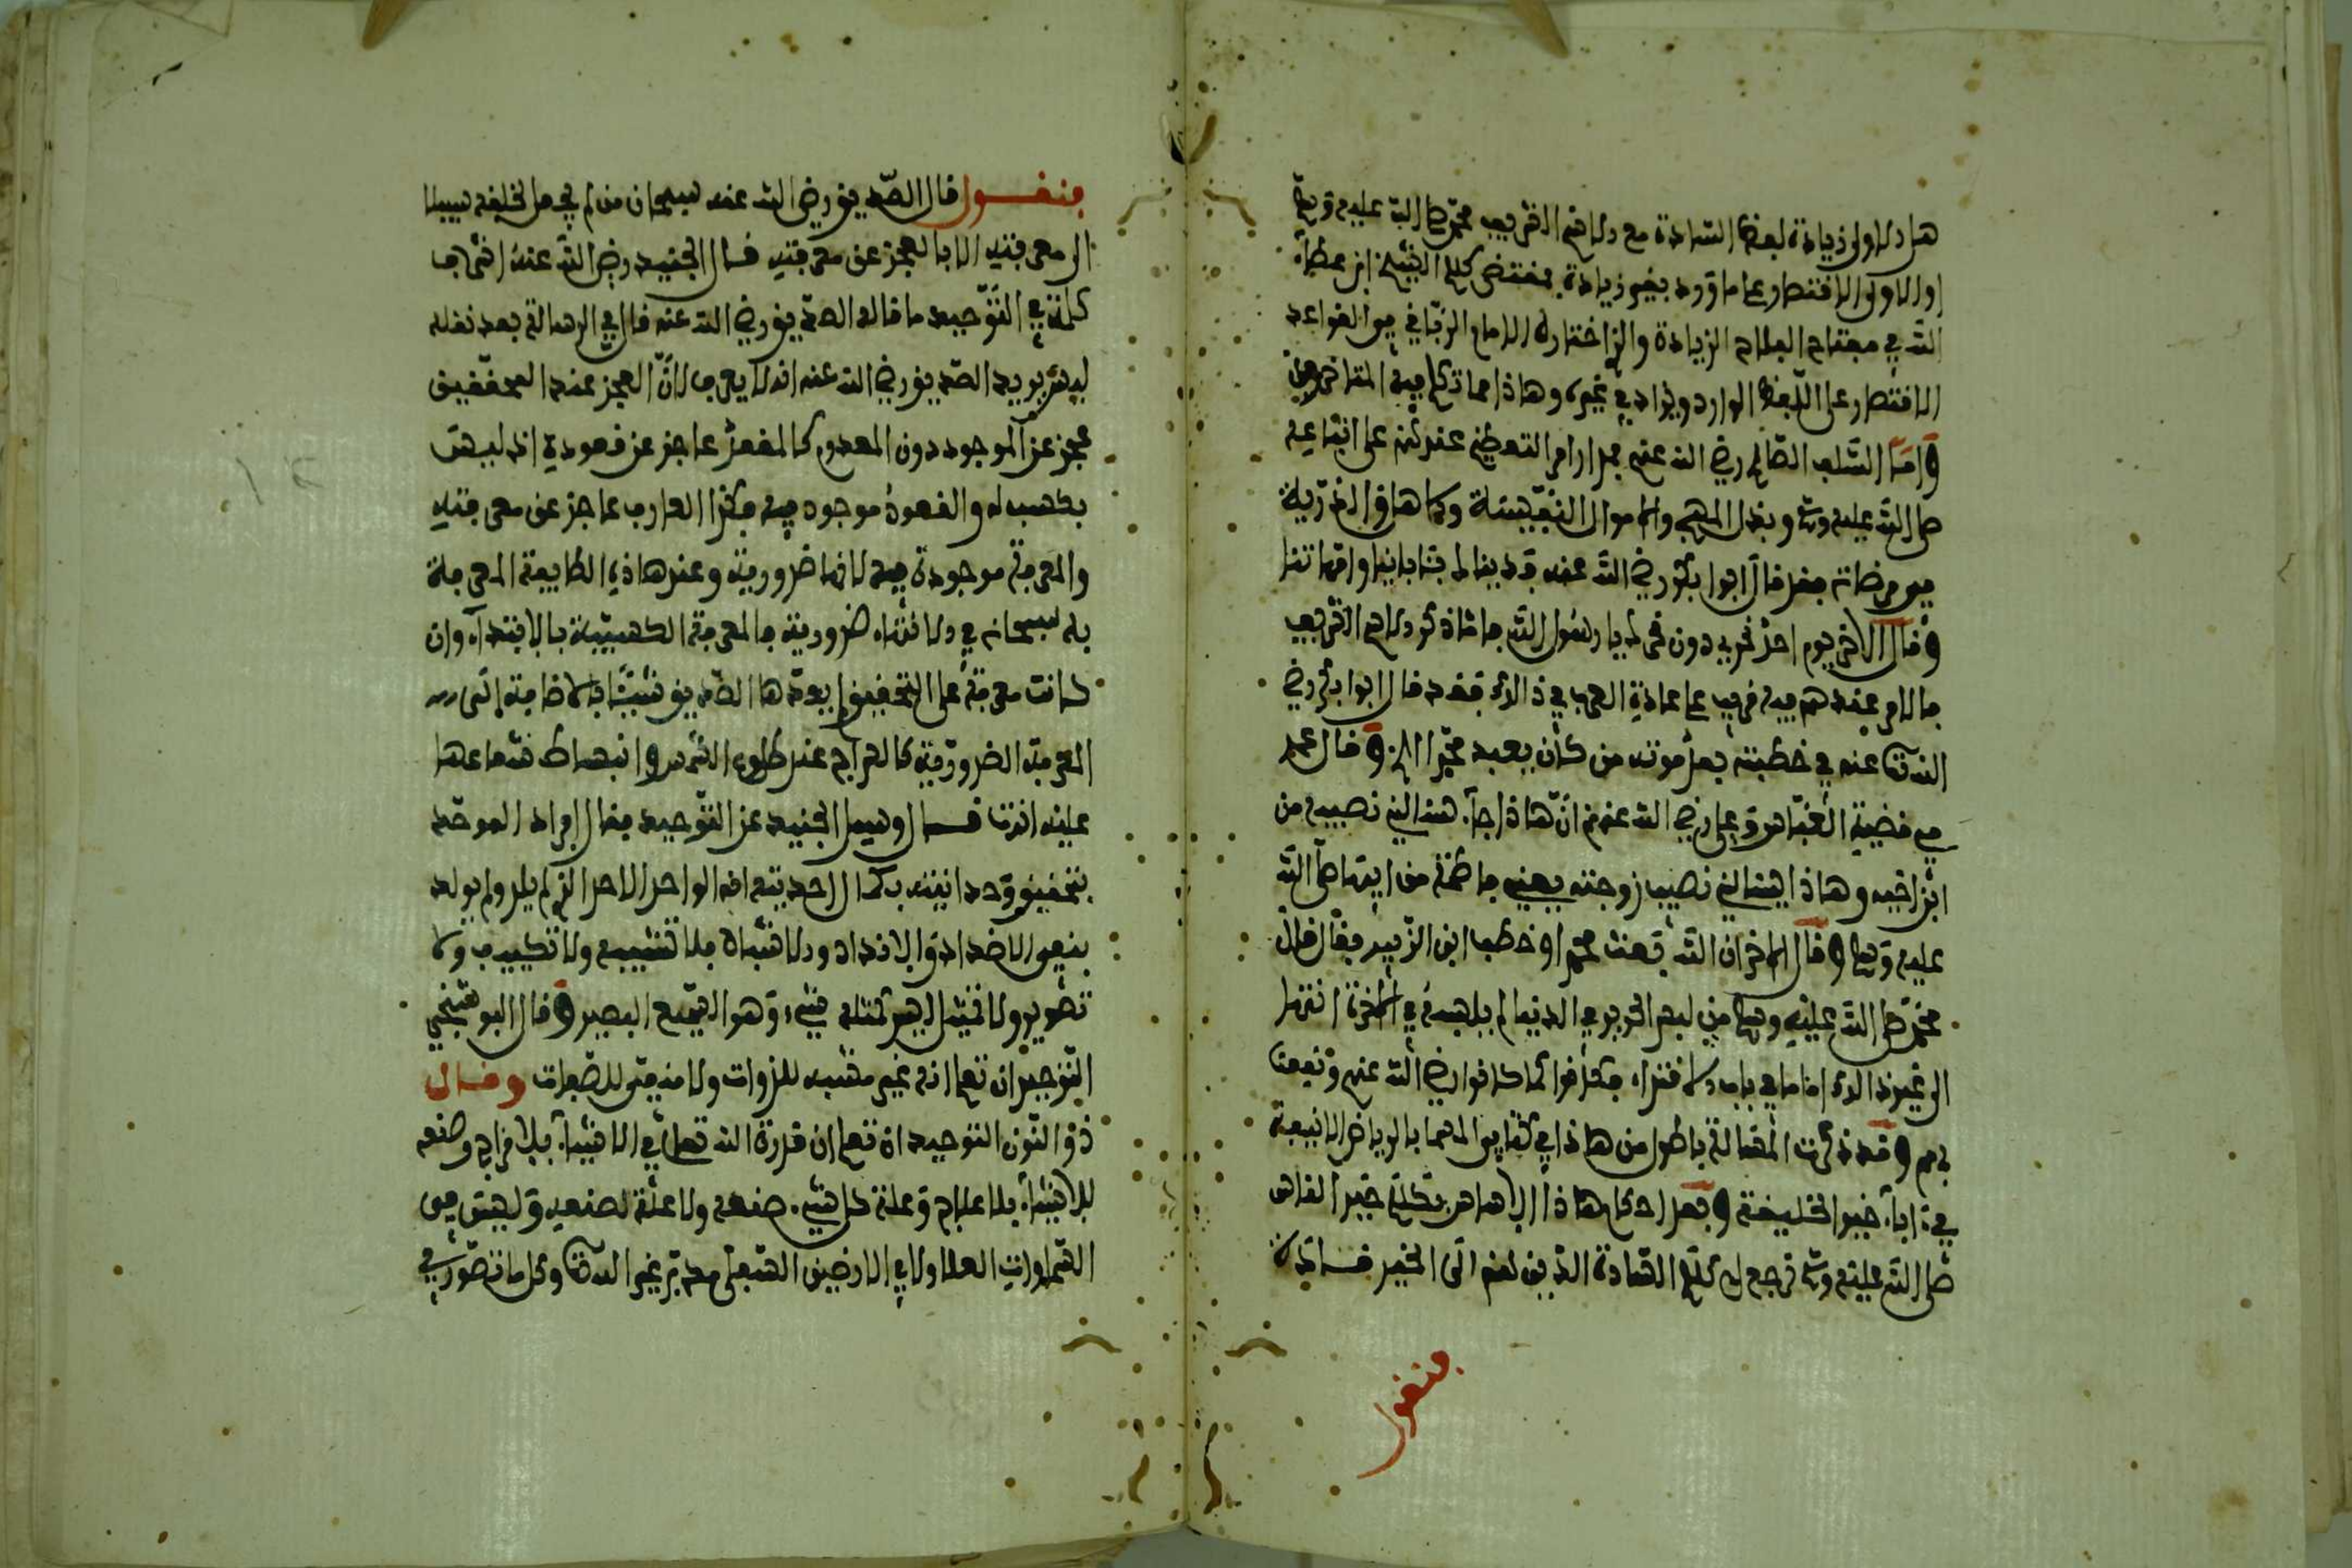 هل الاولى زيادة لفظ السيادة مع ذكر اسمه الشريف محمد صلى الله عليه وسلم
او الاولى الاقتصار على ما ورد بغير زيادة فمقتضى كلام الشيخ ابن عطاء
الله في مفتاح الفلاح الزيادة والذي اختاره الامام الزياني
الاقتصار على اللفظ الوارد ويزاد في غيره وهاذا مما تكلم فيه المتاخرون
واما السلف الصالح رضي الله عنهم مدار امر التعظيم عندهم على اتباعه
صلى الله عليه وسلم وبذل المهج والاموال النفيسة والذرية
في مرضاته فقد قال ابوا بكر رضي الله عنه فدينا لك بئابائنا وامهاتنا
وقال الاخر يوم احد نحري دون نحرك يا رسول الله فاما ذكر الاسم الشريف
فالامر عندهم فيه قريب على عادة العرب في ذالك فقد قال ابوا بكر رضي
الله عنه في خطبته بعد موته من كان يعبد محمدا الخ وقال عمر
في قضية العباس وعلي رضي الله عنهم ان هاذا جاء يسئالني نصيبه من
ابن اخيه وهاذا يسئالني نصيب زوجته يعني فاطمة من ابيها صلى الله
عليه وسلم وقال الاخر ان الله بعث محمدا وخطب ابن الزبير فقال قال
محمد صلى الله عليه وسلم من لبس الحرير في الدنيا لم يلبسه في الاخرة انتهى
الى غير ذالك اما ما في باب الاقتداء فكانوا كما كانوا رضي الله عنهم ونفعنا
بهم وقد ذكرت المقالة باطول من هاذا في كتابي المسما بالرياض الانيقة
خير الخليقة وبعد احكام هاذا الاساس نتكلم خير الناس
صلى الله عليه وسلم فرجع الى كلام السادة الذين لهم اتى الخير
منقول
منقول قال الصديق رضي الله عنه سبحان من لم يجعل لخلقه سبيلا
الى معرفته الا بالعجز عن معرفته قال الجنيد رضي الله عنه اشرف
كلمة في التوحيد ما قاله الصديق رضي الله عنه قال في الرسالة بعد نقله
ليس يريد الصديق رضي الله عنه انه لا يعرف لان العجز عند المحققين
عجز عن الموجود دون المعدوم كالمقعد عاجز عن قعوده اذ ليس
بكسب له والقعود موجود فيه فكذا العارف عاجز عن معرفته
والمعرفة موجودة فيه لانها ضرورية وعند هاذه الطايفة المعرفة
به سبحانه في الانتهاء ضرورية فالمعرفة الكسبية بالابتداء وان
كانت معرفة على التحقيق لم يعدها الصديق شيئا بالاضافة الى
المعرفة الضرورية كالسراج عند طلوع الشمس وانبساط شعاعها
عليه انتهى قال وسيل الجنيد عن التوحيد فقال افراد الموحد
بتحقيق وحدانيته بكمال احديته انه الواحد الاحد الذي لم يلد ولم يولد
بنفي الاضداد والانداد والاشباه بلا تشبيه ولا تكييف ولا
تصوير ولا تمثيل ليس كمثله شيء وهو السميع البصير وقال البوشنجي
التوحيد ان تعلم انه غير مشبه للذوات ولا منفي للصفات وقال
ذو النون التوحيد ان تعلم ان قدرة الله تعلى في الاشياء بلا مزاج وصنعه
للاشياء بلا علاج وعلة كل شيء صنعه ولا علة لصنعه وليس في
السماوات العلا ولا في الارضين السفلى مدبر غير الله وكل ما تصور في